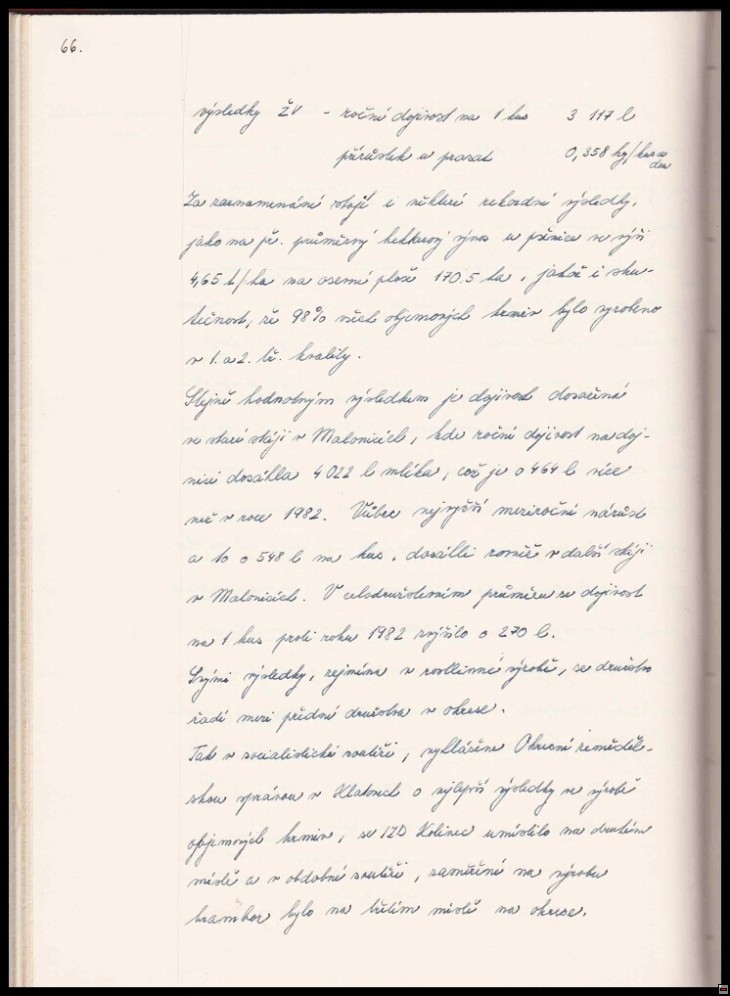 66.
výsledky ŽV - roční dojivost na 1 kus 3 117 l
přírůstek u prasat 0,358 kg/kus a
den
Za zaznamenání stojí i některé rekordní výsledky,
jako na př. průměrný hektarový výnos u pšenice ve výši
4,65 t/ha na osevní ploše 170,5 ha, jakož i sku-
tečnost, že 98% všech objemových krmiv bylo vyrobeno
v 1. a 2. tř. kvality.
Stejně hodnotným výsledkem je dojivost dosažená
ve staré stáji v Malonicích, kde roční dojivost na doj-
nici dosáhla 4 022 l mléka, což je o 464 l více
než v roce 1982. Vůbec nejvyšší meziroční nárůst
a to o 548 l na kus, dosáhli rovněž v další stáji
v Malonicích. V celodružstevním průměru se dojivost
na 1 kus proti roku 1982 zvýšila o 270 l.
Svými výsledky, zejména v rostlinné výrobě, se družstvo
řadí mezi přední družstva v okrese.
Tak v socialistické soutěži, vyhlášené Okresní zeměděl-
skou správou v Klatovech o nejlepší výsledky ve výrobě
objemových krmiv, se JZD Kolinec umístilo na druhém
místě a v obdobné soutěži, zaměřené na výrobu
brambor bylo na třetím místě na okrese.